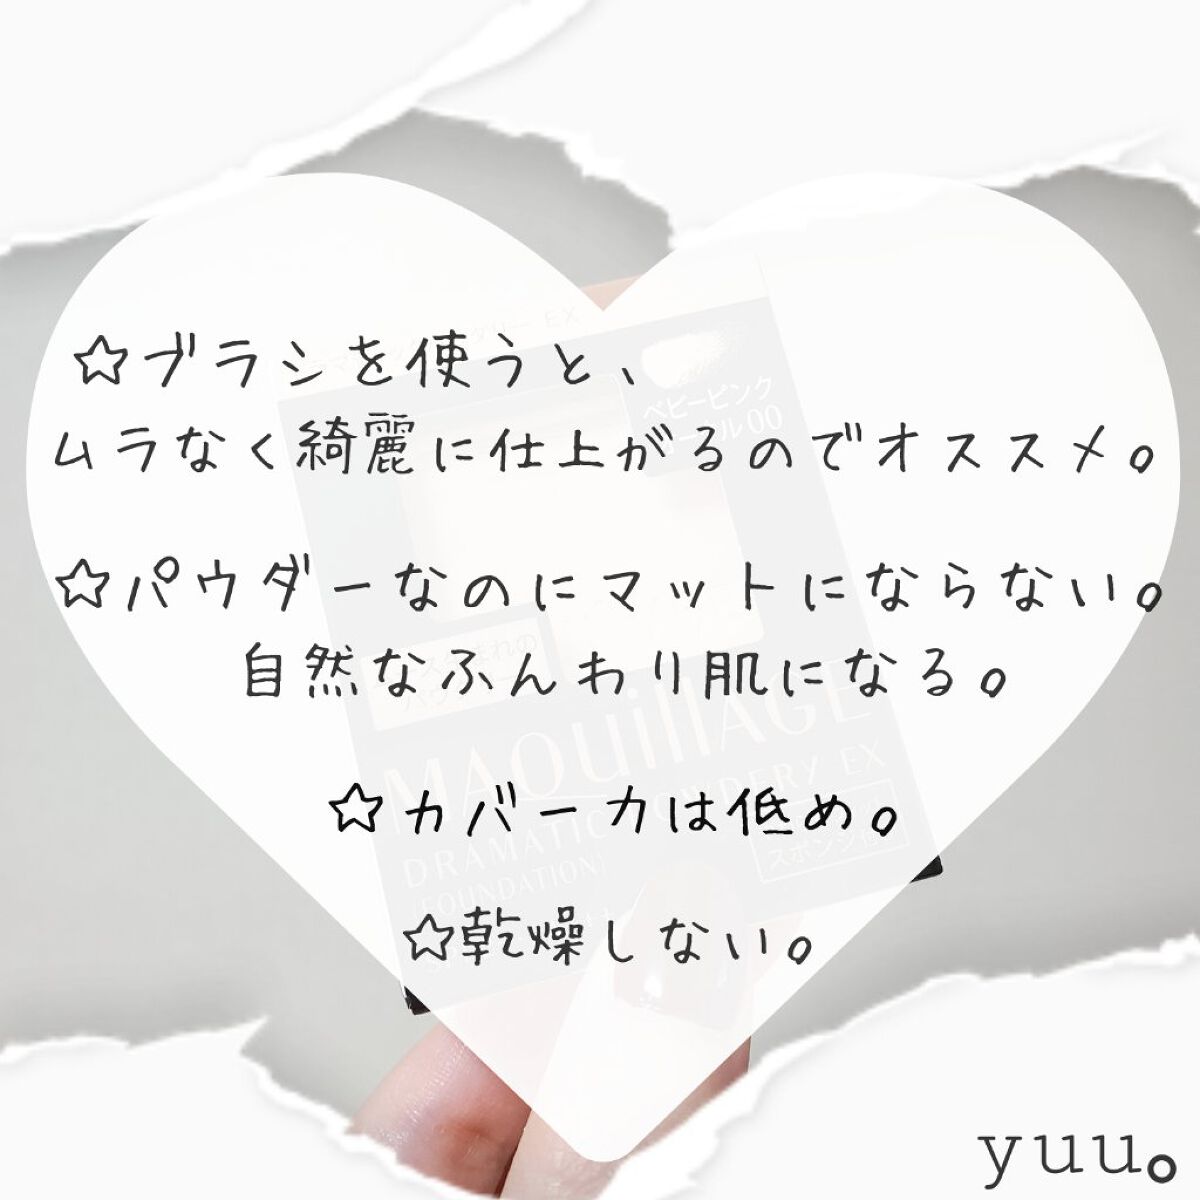 ☆ブラシを使うと、
ムラなく綺麗に仕上がるのでオススメ。
☆パウダーなのにマットにならない。
自然なふんわり肌になる。
☆カバー力は低め。
☆乾燥しない。
EX
ベビーピンク
00
MAQuillAGE
DRAMATIC POWDERY EX
(FOUNDATION)
スポンジ付
yuu。